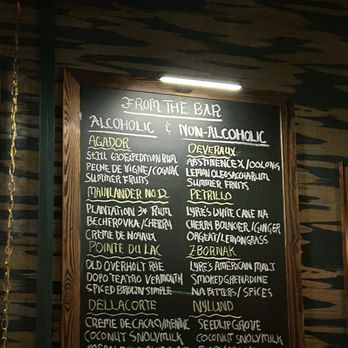 FROM THE BAR
ALCOHOLIC & NON-ALCOHOLIC
AGADOR
STILL G.EXPEDITION RUM
PECHE DE VIGNE/COGNAC
SUMMER FRUITS
MAINLANDER NO.12
PLANTATION 3* RUM
BECHEROVKA/CHERRY
CREME DE NOYAUX
POINTE DU LAC
OLD OVERHOLT RYE
DOPO TEATRO VERMOUTH
SPICED BROWN SIMPLE
DELLACORTE
CREME DE CACAO/MENTHE
COCONUT SNOWY MILK
DEVERAUX
ABSTINENCE X/OOLONG
LEMON OLEO SACCHARUM
SUMMER FRUITS
PETRILLO
LYRE'S WHITE CANE NA
CHERRY BOUNCER/GINGER
ORGEAT/LEMONGRASS
ZBORNAK
LYRE'S AMERICAN MALT
SMOKED GRENADINE
NA BITTERS/SPICES
NYLUND
SEEDLIP GROVE
COCONUT SNOWY MILK